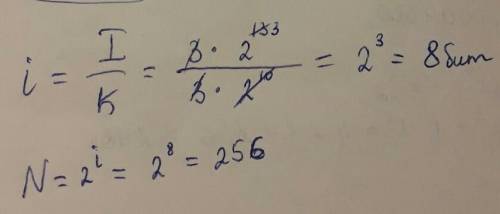 i = I/K = 3 · 2^13/3 · 2^10 = 2^3 = 8 бит
N = 2^i = 2^8 = 256